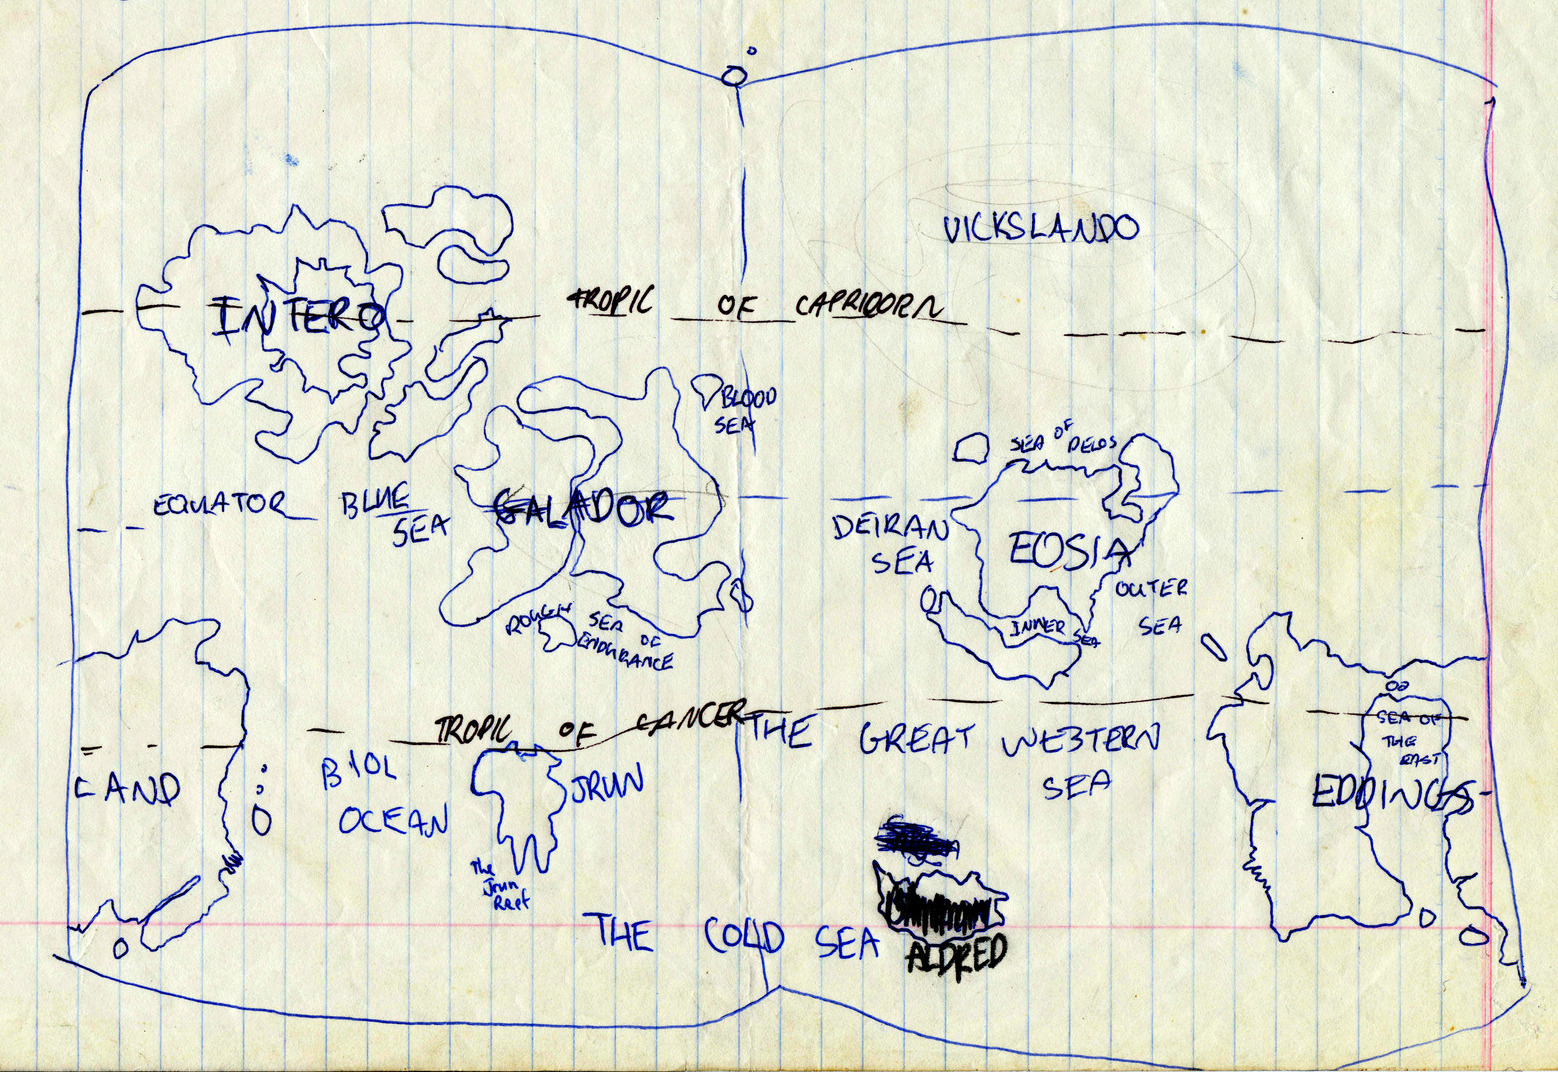 VICKSLANDO
INTERO
TROPIC OF CAPRICORN
BLOOD
SEA
SEA OF DELOS
EQUATOR
BLUE
SEA
GALADOR
DEIRAN
SEA
EOSIA
OUTER
SEA
INNER SEA
ROUGH
SEA OF
ENDURANCE
TROPIC OF CANCER
THE GREAT WESTERN
SEA
SEA OF
THE
EAST
LAND
EDDINGS
BIOL
OCEAN
JRUN
The
Jrun
Reef
THE COLD SEA
ALDRED